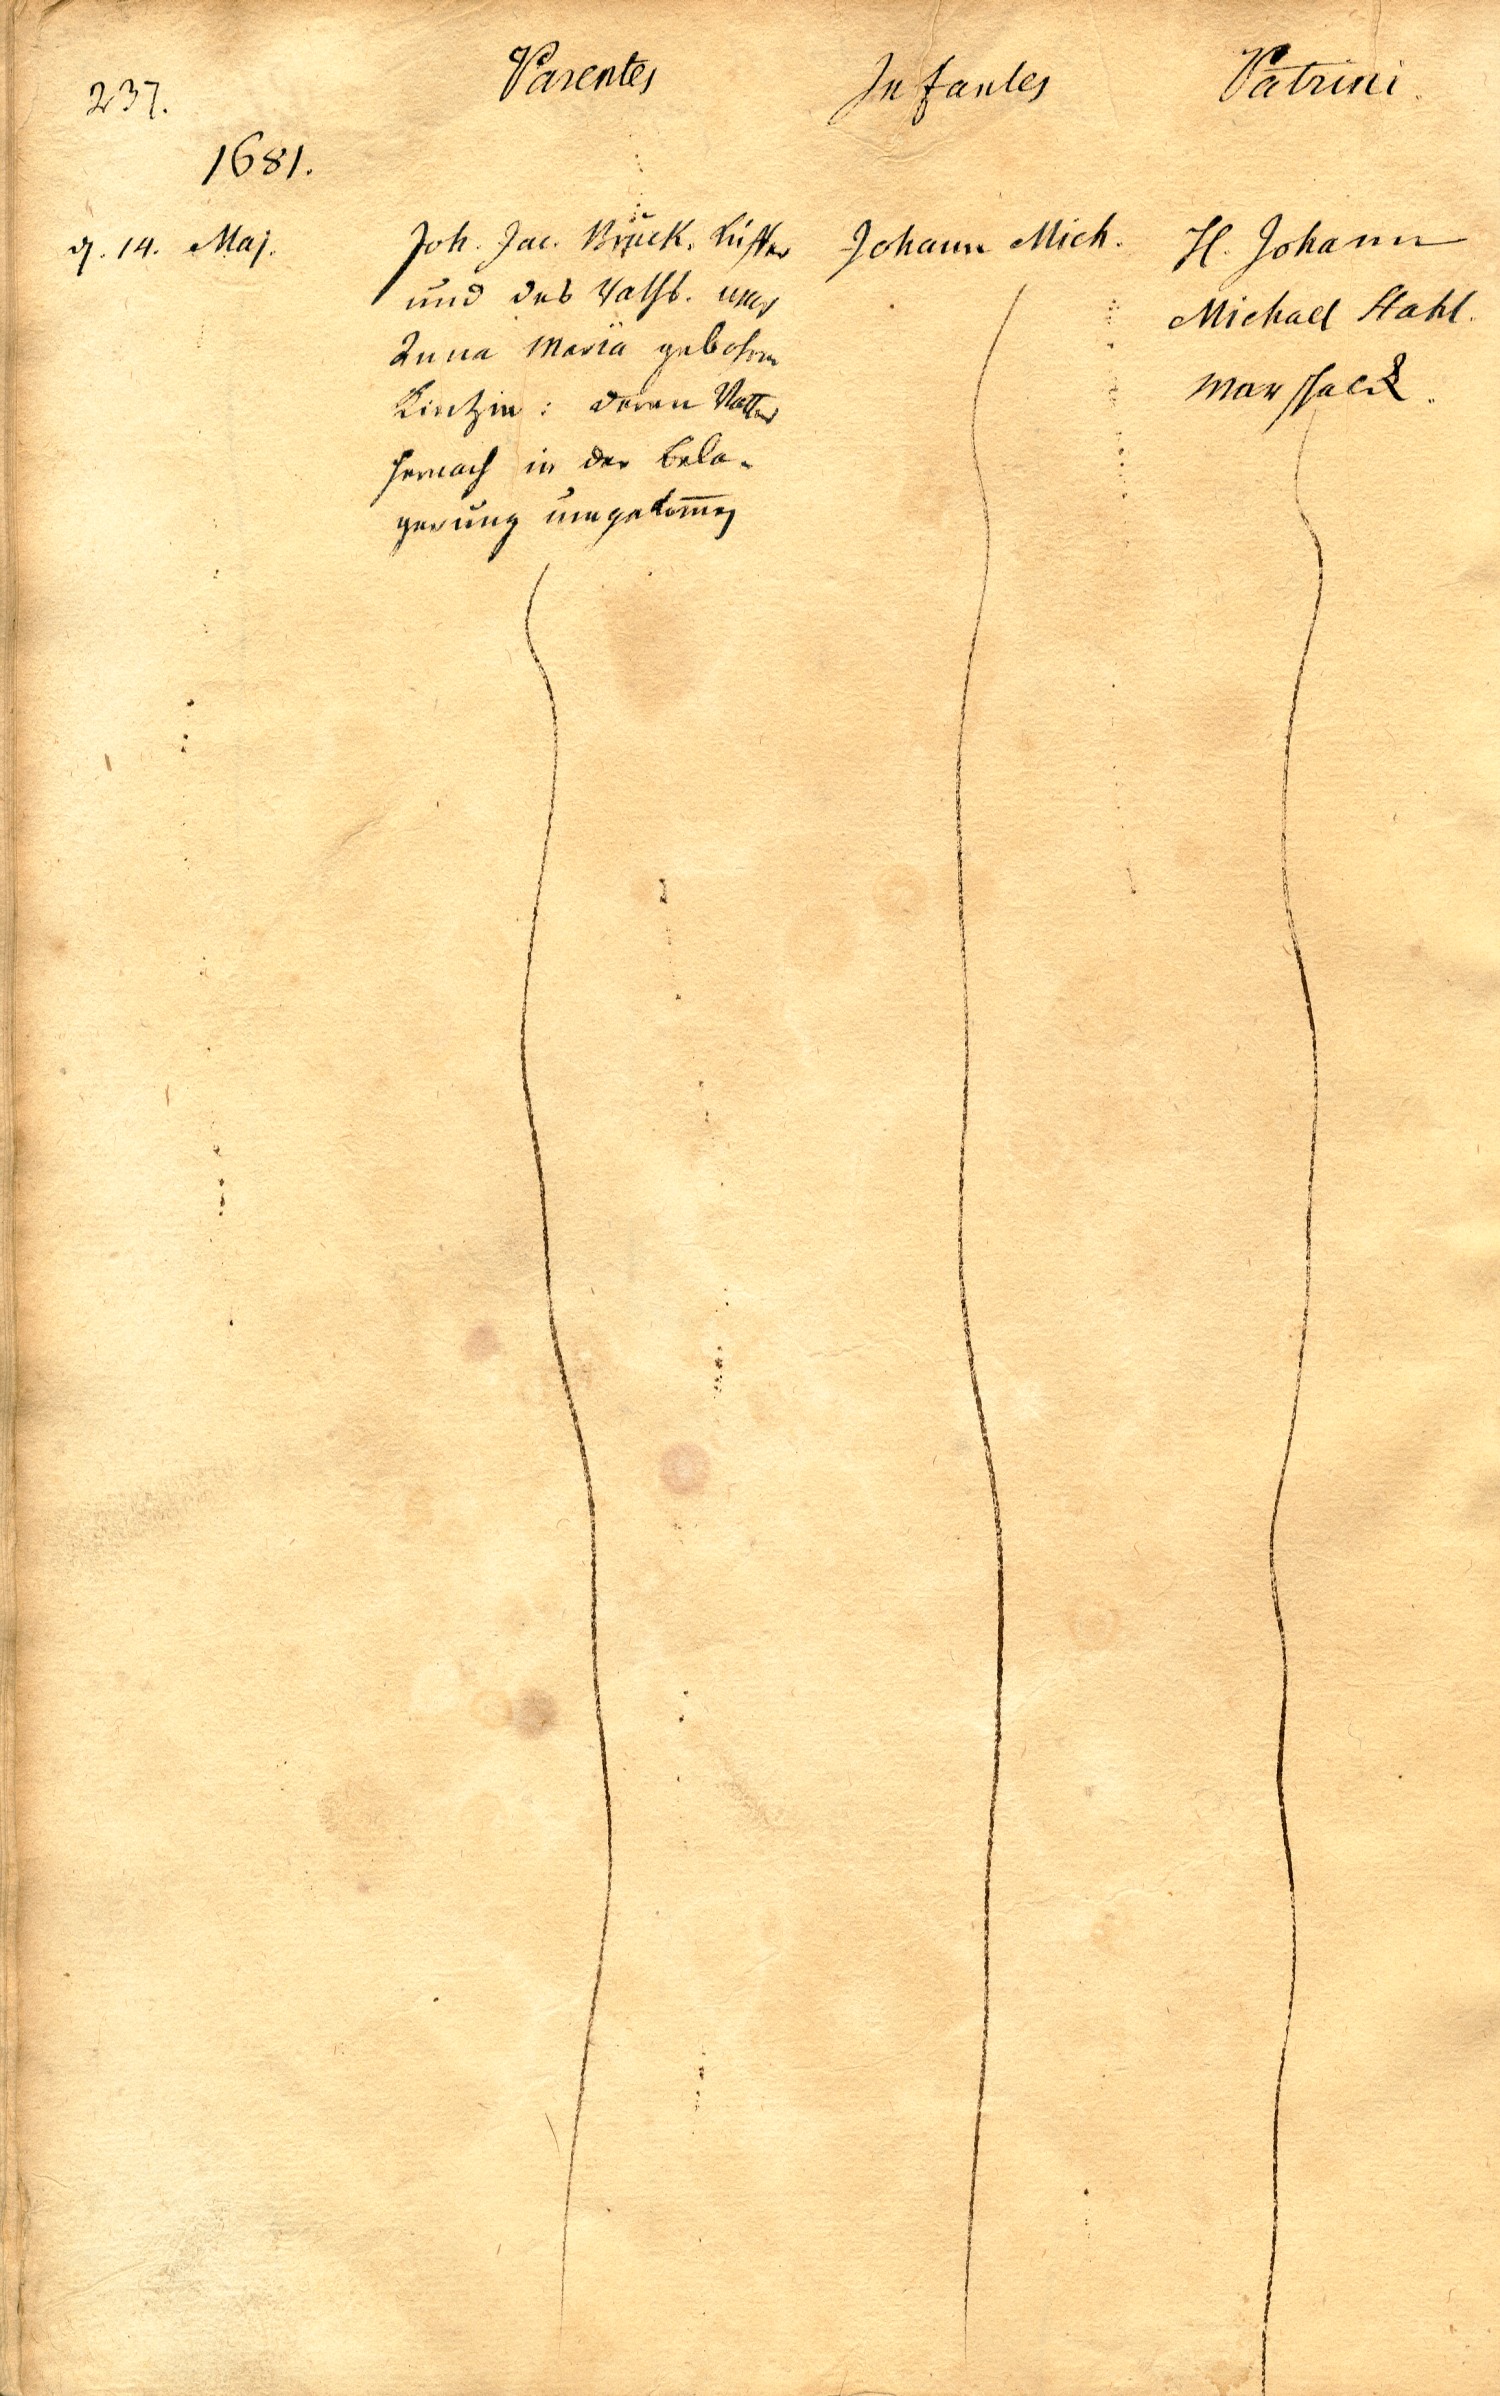 237.
Parentes
Infantes
Patrini.
1681.
d. 14. Maj.
Joh. Jac. Brück. Küffer
und des Raths. uxor
Anna Maria gebohrn
Kintzin: deren Vatter
hernach in der Bela-
gerung umgekom̄en
Johann Mich.
H. Johann
Michael Stahl.
Marschalck.